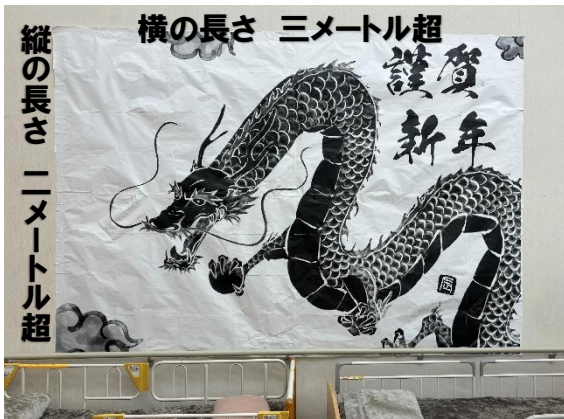 横の長さ　三メートル超
縦の長さ　二メートル超
謹賀
新年